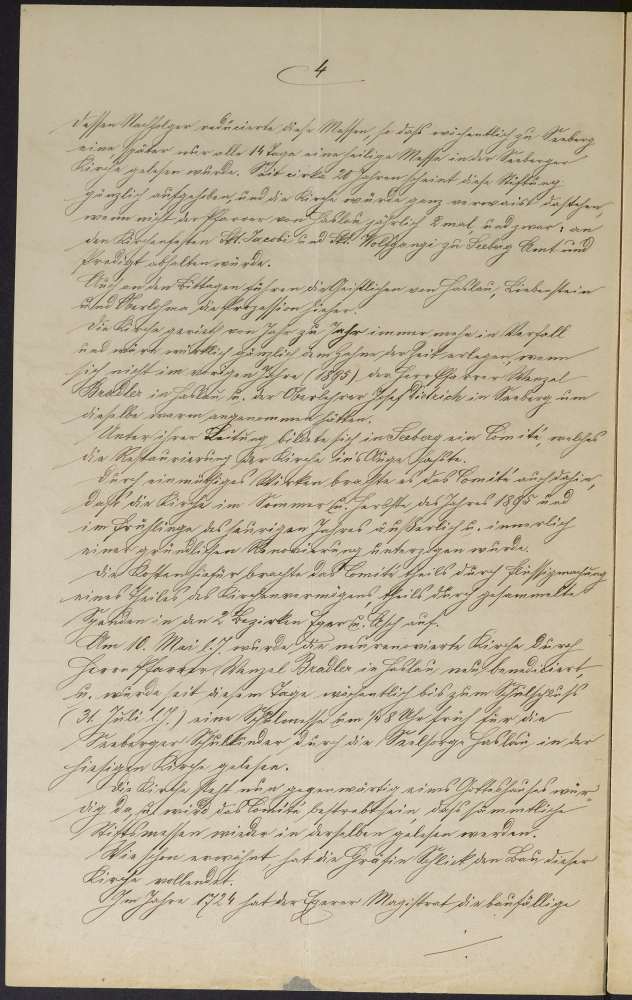 4
dessen Nachfolger reducierte diese Messen, so daß wöchentlich zu Seeberg
eine später nur alle 14 Tage eine heilige Messe in der Seeberger
Kirche gelesen wurde. Seit cirka 20 Jahren scheint diese Stiftung
gänzlich aufgehoben, und die Kirche würde ganz verwaist dastehen,
wenn nicht der Pfarrer von Haslau jährlich 2 mal, und zwar: an
den Kirchenfesten Skt. Jacobi und Skt. Wolfgangi zu Seeberg Amt und
Predigt abhalten würde.
Auch an den Bittagen führen die Geistlichen von Haslau, Liebenstein
und Oberlohma die Prozession hieher.
Die Kirche geriet von Jahr zu Jahr immer mehr in Verfall
und wäre wirklich gänzlich dem Zahne der Zeit erlegen, wenn
sich nicht im vorigen Jahre (1895) der Herr Pfarrer Wenzel
Bradler in Haslau u. der Oberlehrer Josef Dietrich in Seeberg um
dieselbe warm angenommen hätten.
Unter ihrer Leitung bildete sich in Seeberg ein Comité, welches
die Restaurierung der Kirche ins Auge faßte.
Durch einmüthiges Wirken brachte es das Comité auch dahin,
daß die Kirche im Sommer u. Herbste des Jahres 1895 und
im Frühlinge des heurigen Jahres äußerlich u. innerlich
einer gründlichen Renovierung unterzogen wurde.
Die Kosten hiefür brachte das Comité theils durch Flüssigmachung
eines Theiles des Kirchenvermögens theils durch gesammelte
Spenden in den 2 Bezirken Eger u. Asch auf.
Am 10. Mai l. J. wurde die neu renovierte Kirche durch
Herrn Pfarrer Wenzel Bradler in Haslau neu benediciert,
u. wurde seit diesem Tage wöchentlich bis zum Schulschluß
(31. Juli l. J.) eine Schulmesse um 8 Uhr früh für die
Seeberger Schulkinder durch die Seelsorge Haslau in der
hiesigen Kirche gelesen.
Die Kirche steht nun gegenwärtig eines Gotteshauses wür-
dig da, u. wird das Comité bestrebt sein, daß sämmtliche
Stiftsmessen wieder in derselben gelesen werden.
Wie schon erwähnt, hat die Gräfin Schlick den Bau dieser
Kirche vollendet.
Im Jahre 1724 hat der Egerer Magistrat die baufällige